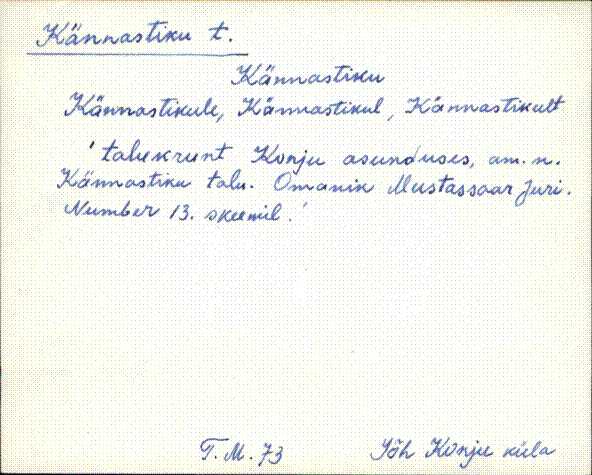 Kännastiku t.
Kännastiku
Kännastikule, Kännastikul, Kännastikult
'talukrunt Konju asunduses, am. n.
Kännastiku talu. Omanik Mustassaar Juri.
Number 13. skeemil.'
T. M. 73 Jõh Konju küla